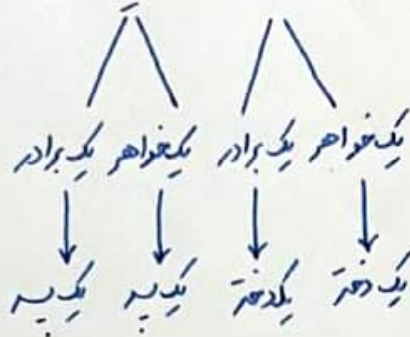 یک خواهر یک برادر یک خواهر یک برادر
یک دختر یک دختر یک پسر یک پسر